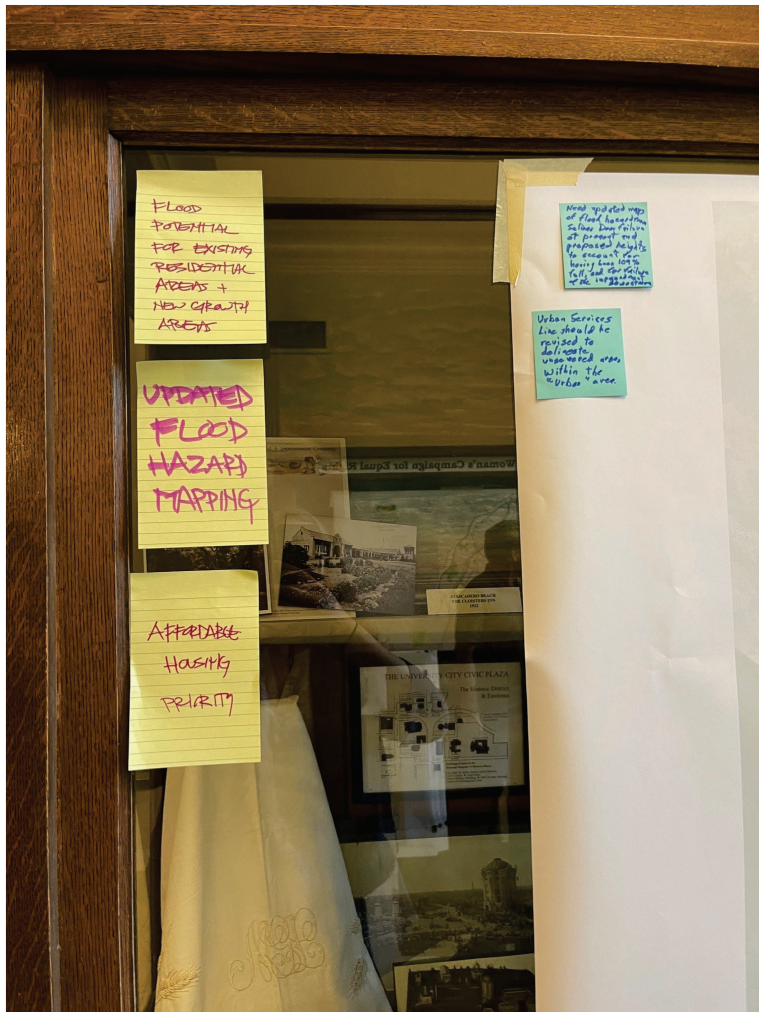 FLOOD
POTENTIAL
FOR EXISTING
RESIDENTIAL
AREAS +
NEW GROWTH
AREAS
UPDATED
FLOOD
HAZARD
MAPPING
AFFORDABLE
HOUSING
PRIORITY
Need updated maps
of flood hazard from
Salinas Dam failure
at present and
proposed heights
to account for
having been 109%
full, and for failure
of the
downstream
Urban Services
Line should be
revised to
delineate
unsewered areas
within the
"Urban" area.
Woman's Campaign for Equal
ATASCADERO BEACH
THE CLOISTERS INN
1932
THE UNIVERSITY CITY CIVIC PLAZA
The Historic District
& Environs